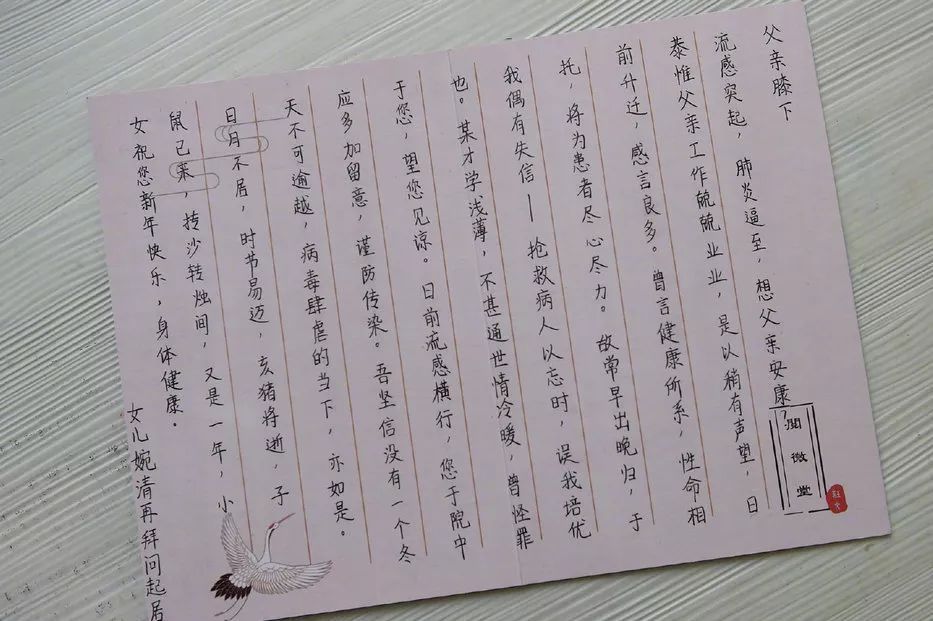 父亲膝下
流感突起，肺炎逼至，想父亲安康？
恭惟父亲工作兢兢业业，是以稍有声望，日
前升迁，感言良多。曾言健康所系，性命相
托，将为患者尽心尽力。故常早出晚归，于
我偶有失信——抢救病人以忘时，误我培优
也。某才学浅薄，不甚通世情冷暖，曾怪罪
于您，望您见谅。日前流感横行，您于院中
应多加留意，谨防传染。吾坚信没有一个冬
天不可逾越，病毒肆虐的当下，亦如是。
日月不居，时节易迈，亥猪将逝，子
鼠已来，抟沙转烛间，又是一年，小
女祝您新年快乐，身体健康。
女儿婉清再拜问起居
阅微堂